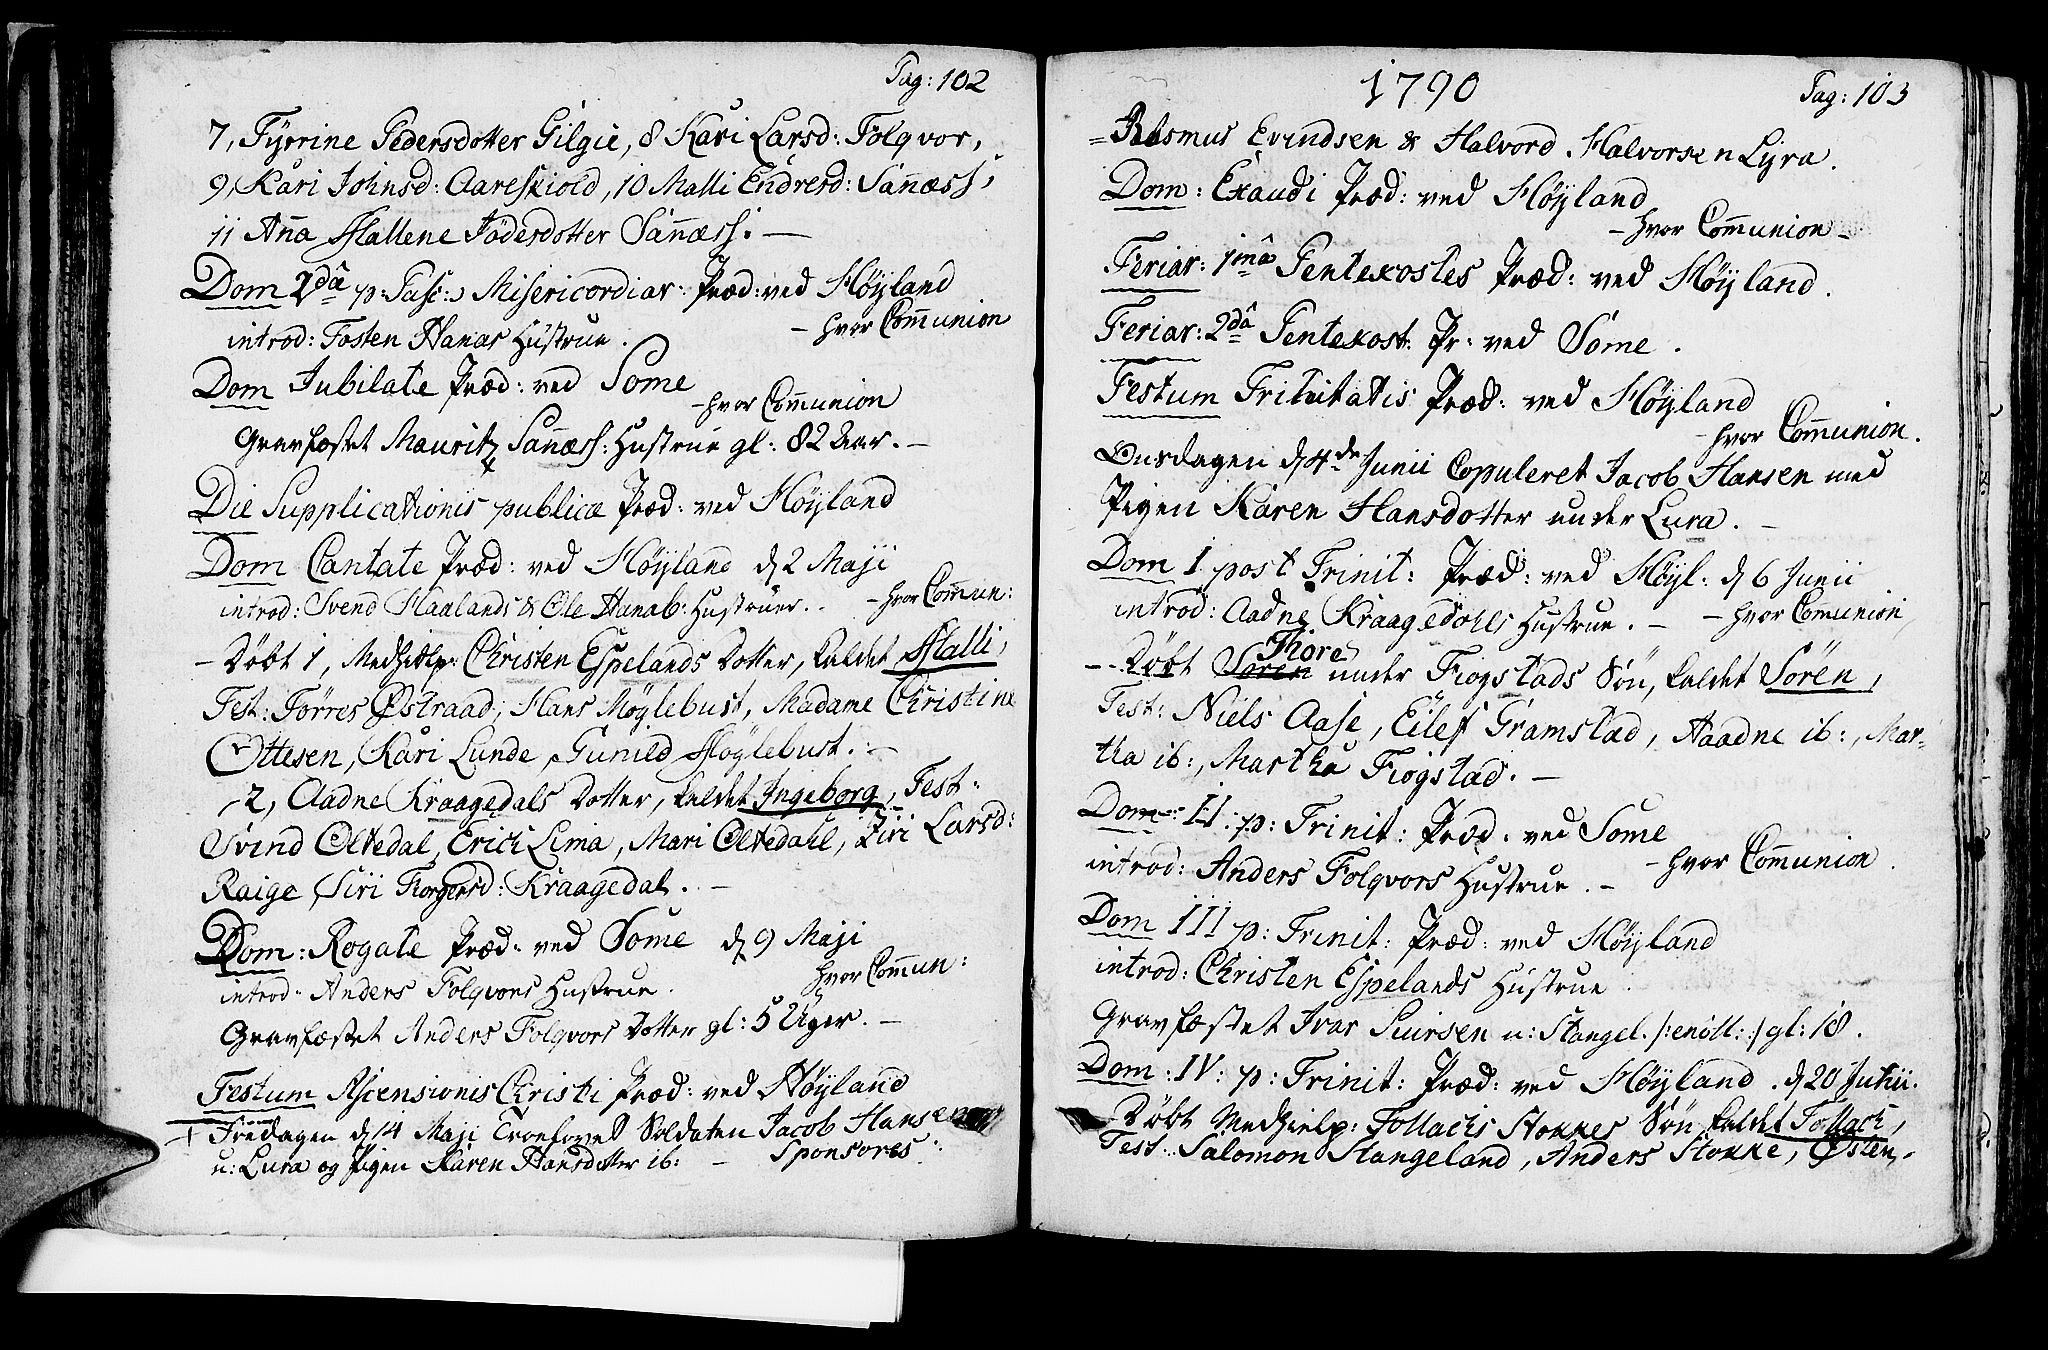 Pag: 102
7, Tyrrine Pedersdotter Gilgie, 8 Kari Larsd: Folqvor,
9, Kari Johnsd: Aareskiold, 10 Malli Endresd: Sañæss,
11 Aña Mallene Jödesdotter Sañæss. —
Dom 2dâ p: Pasc: Misericordiar: Præd: ved Höyland
— hvor Com̄union
introd: Tosten Hanas Hustrue.
Dom Jubilate Præd: ved Some
— hvor Com̄union
Gravfæstet Mauritz Sañæss: Hustrue gl: 82 Aar. —
Die Supplicationis publicæ Præd: ved Höyland
Dom Cantate Præd: ved Höyland d 2 Maji
introd: Svend Haalands & Ole Hanab: Hustruer. — hvor Com̄un:
— Döbt 1, Medhielp: Christen Espelands Dotter, kaldet Malli,
Test: Törres Østraad, Hans Möglebust, Madame Christine
Ottesen, Kari Lunde, Gunild Möglebust. —
2, Aadne Kraagedals Dotter, kaldet Ingeborg, Test:
Svind Oltedal, Erich Lima, Mari Oltedahl, Ziri Larsd:
Raige, Siri Torgersd: Kraagedal. —
Dom: Rogate Præd: ved Some d 9 Maji
hvor Com̄un:
introd: Anders Folqvors Hustrue.
Gravfæstet Anders Folqvors Dotter gl: 5 Uger. —
Festum Ascensionis Christi Præd: ved Höyland
+ Fredagen d 14 Maji Troelovet Soldaten Jacob Hansen
u: Lura og Pigen Karen Hansdotter ib: — Sponsores:
1790
Pag: 103
= Rasmus Evindsen & Halvord Halvorsen Lyra.
Dom: Exaudi Præd: ved Höyland
— hvor Com̄union —
Feriar: 1mâ Pentexostes Præd: ved Höyland.
Feriar: 2dâ Pentexost: Pr: ved Some.
Festum Trinitatis Præd: ved Höyland
— hvor Com̄union.
Onsdagen d 4de Junii Copuleret Jacob Hansen med
Pigen Karen Hansdotter under Lura. —
Dom I post Trinit: Præd: ved Höyl: d 6 Junii
introd: Aadne Kraagedahls Hustrue. — — hvor Com̄union,
Thore
— Döbt Sören under Fiogstads Sön, kaldet Sören,
Test: Niels Aase, Eilef Gramstad, Aadne ib:, Mar-
tha ib:, Martha Fiogstad. —
Dom: II. p: Trinit: Præd. ved Some
— hvor Com̄union.
introd: Anders Folqvors Hustrue. —
Dom III p: Trinit: Præd: ved Höyland
introd: Christen Espelands Hustrue.
Gravfæstet Ivar Siursen u: Stangel. /:enöll:/ gl: 18.
Dom: IV: p: Trinit: Præd: ved Höyland. d 20 Junii.
Döbt Medhielp: Tollachs Stokkes Sön kaldet Tollach,
Test: Salomon Stangeland, Anders Stokke, Østen,